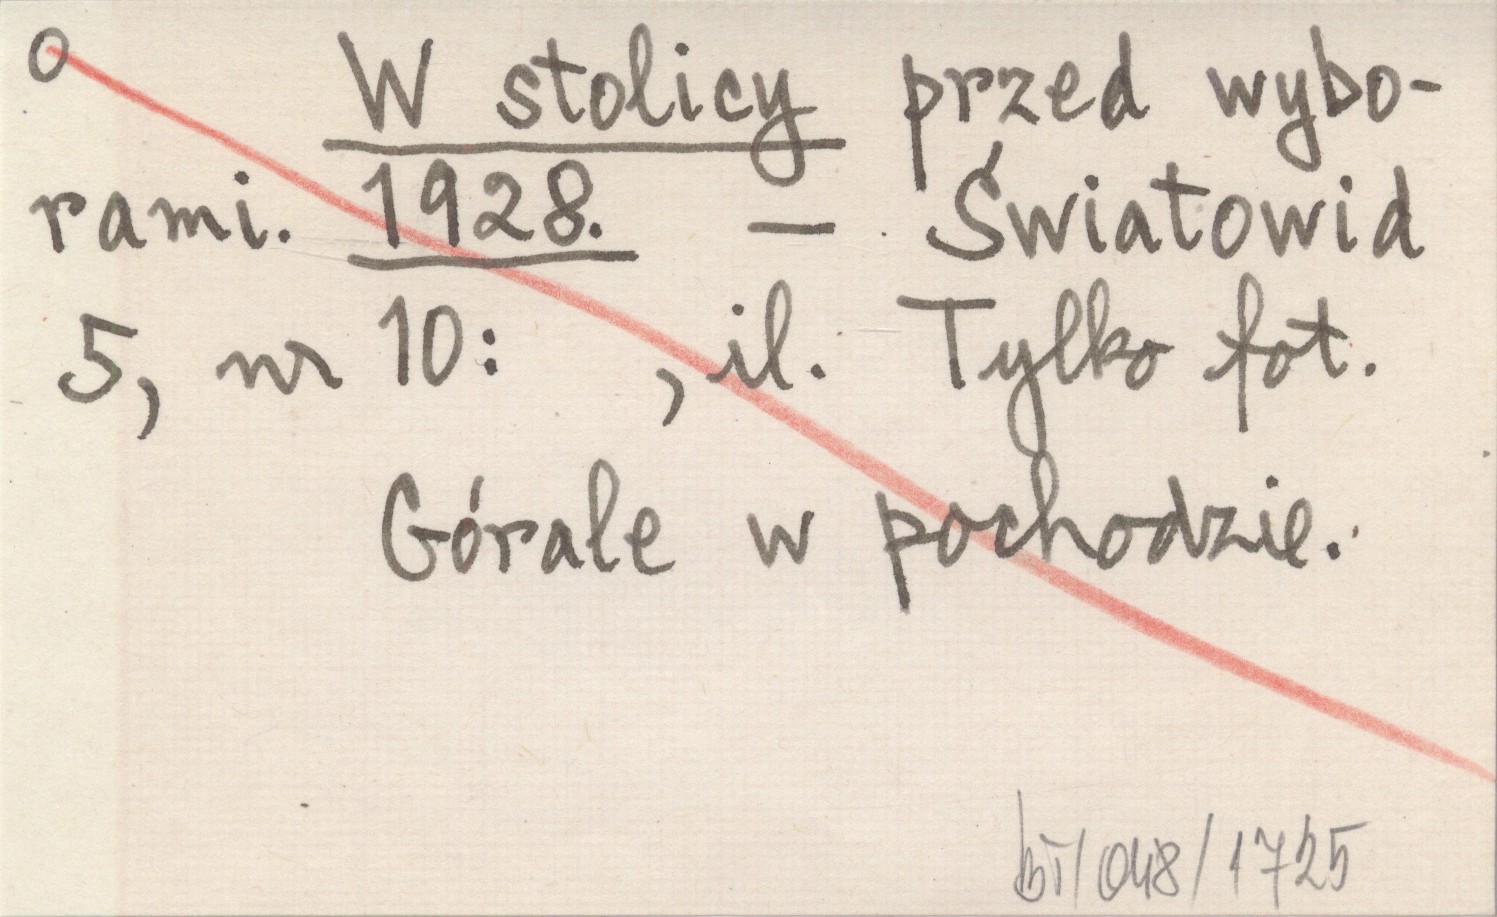 O W stolicy przed wybo-
rami. 1928. – Światowid
5, nr 10: , il. Tylko fot.
Górale w pochodzie.
bT/048/1725